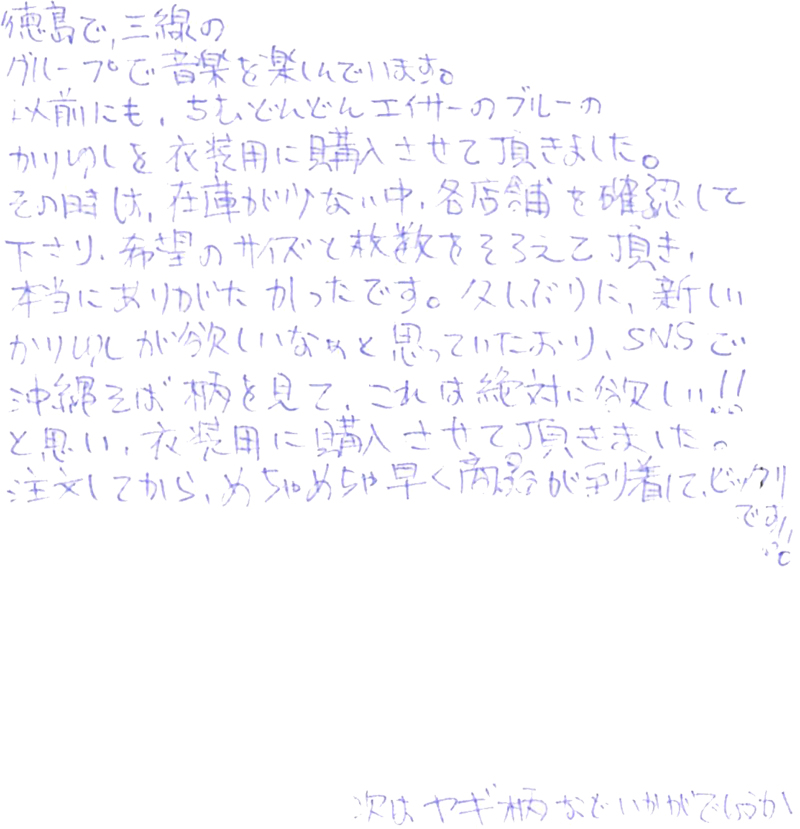 徳島で、三線の
グループで音楽を楽しんでいます。
以前にも、ちむどんどんエイサーのブルーの
かりゆしを衣装用に購入させて頂きました。
その時は、在庫が少ない中、各店舗を確認して
下さり、希望のサイズと枚数をそろえて頂き、
本当にありがたかったです。久しぶりに、新しい
かりゆしが欲しいなぁと思っていたおり、SNSで
沖縄そば柄を見て、これは絶対に欲しい!!
と思い、衣装用に購入させて頂きました。
注文してから、めちゃめちゃ早く商品が到着して、ビックリ
です!!。
次はヤギ柄などいかがでしょうか